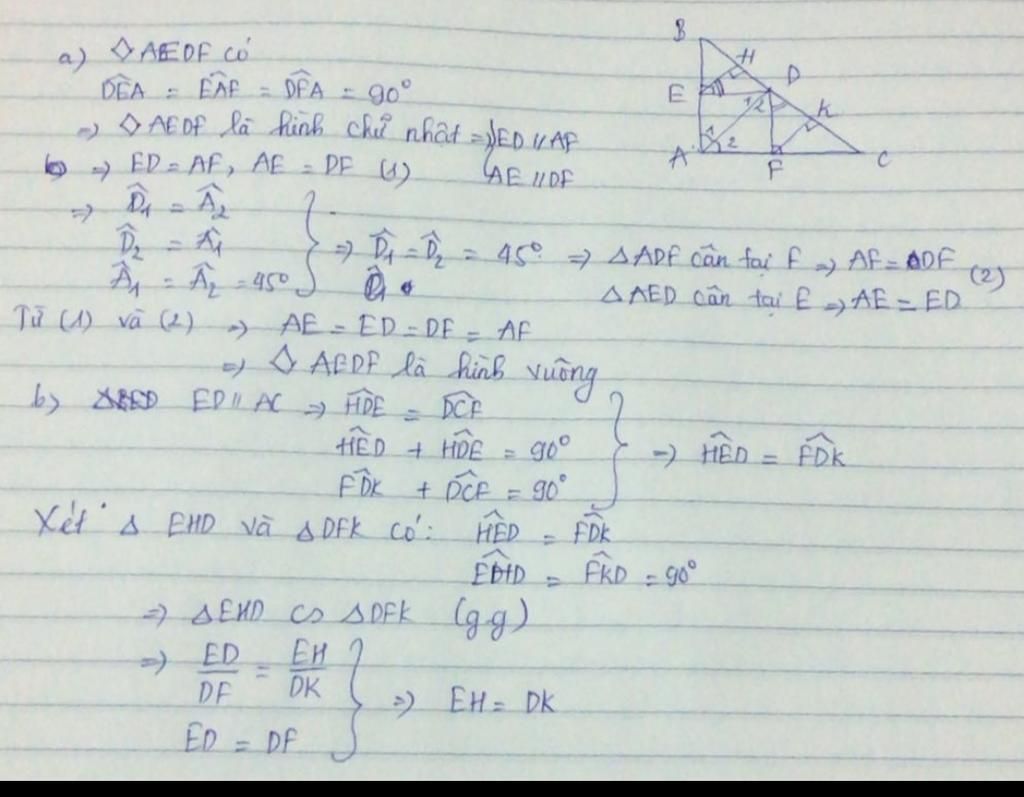 a) ◇ AEDF có
DÊA = EÂF = DF̂A = 90°
=> ◇ AEDF là hình chữ nhật => { ED // AF
AE // DF
=> ED = AF, AE = DF (1)
=> D̂₁ = Â₂
D̂₂ = Â₁
Â₁ = Â₂ = 45° } => D̂₁ = D̂₂ = 45° => ΔADF cân tại F => AF = DF (2)
ΔAED cân tại E => AE = ED
Từ (1) và (2) => AE = ED = DF = AF
=> ◇ AEDF là hình vuông
b) ED // AC => HD̂E = DĈF
HÊD + HD̂E = 90°
FD̂K + DĈF = 90° } => HÊD = FD̂K
Xét Δ EHD và Δ DFK có: HÊD = FD̂K
EĤD = FK̂D = 90°
=> ΔEHD ∽ ΔDFK (g.g)
=> ED/DF = EH/DK
ED = DF } => EH = DK
B
H
D
E
1 2
K
1
A 2
F
C